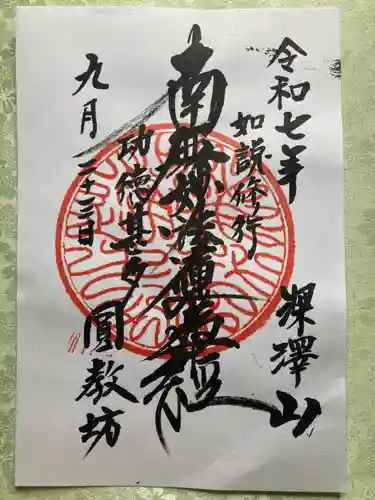 令和七年
深澤山
如說修行
南無妙法蓮華経
功徳甚多
九月二十三日
圓教坊